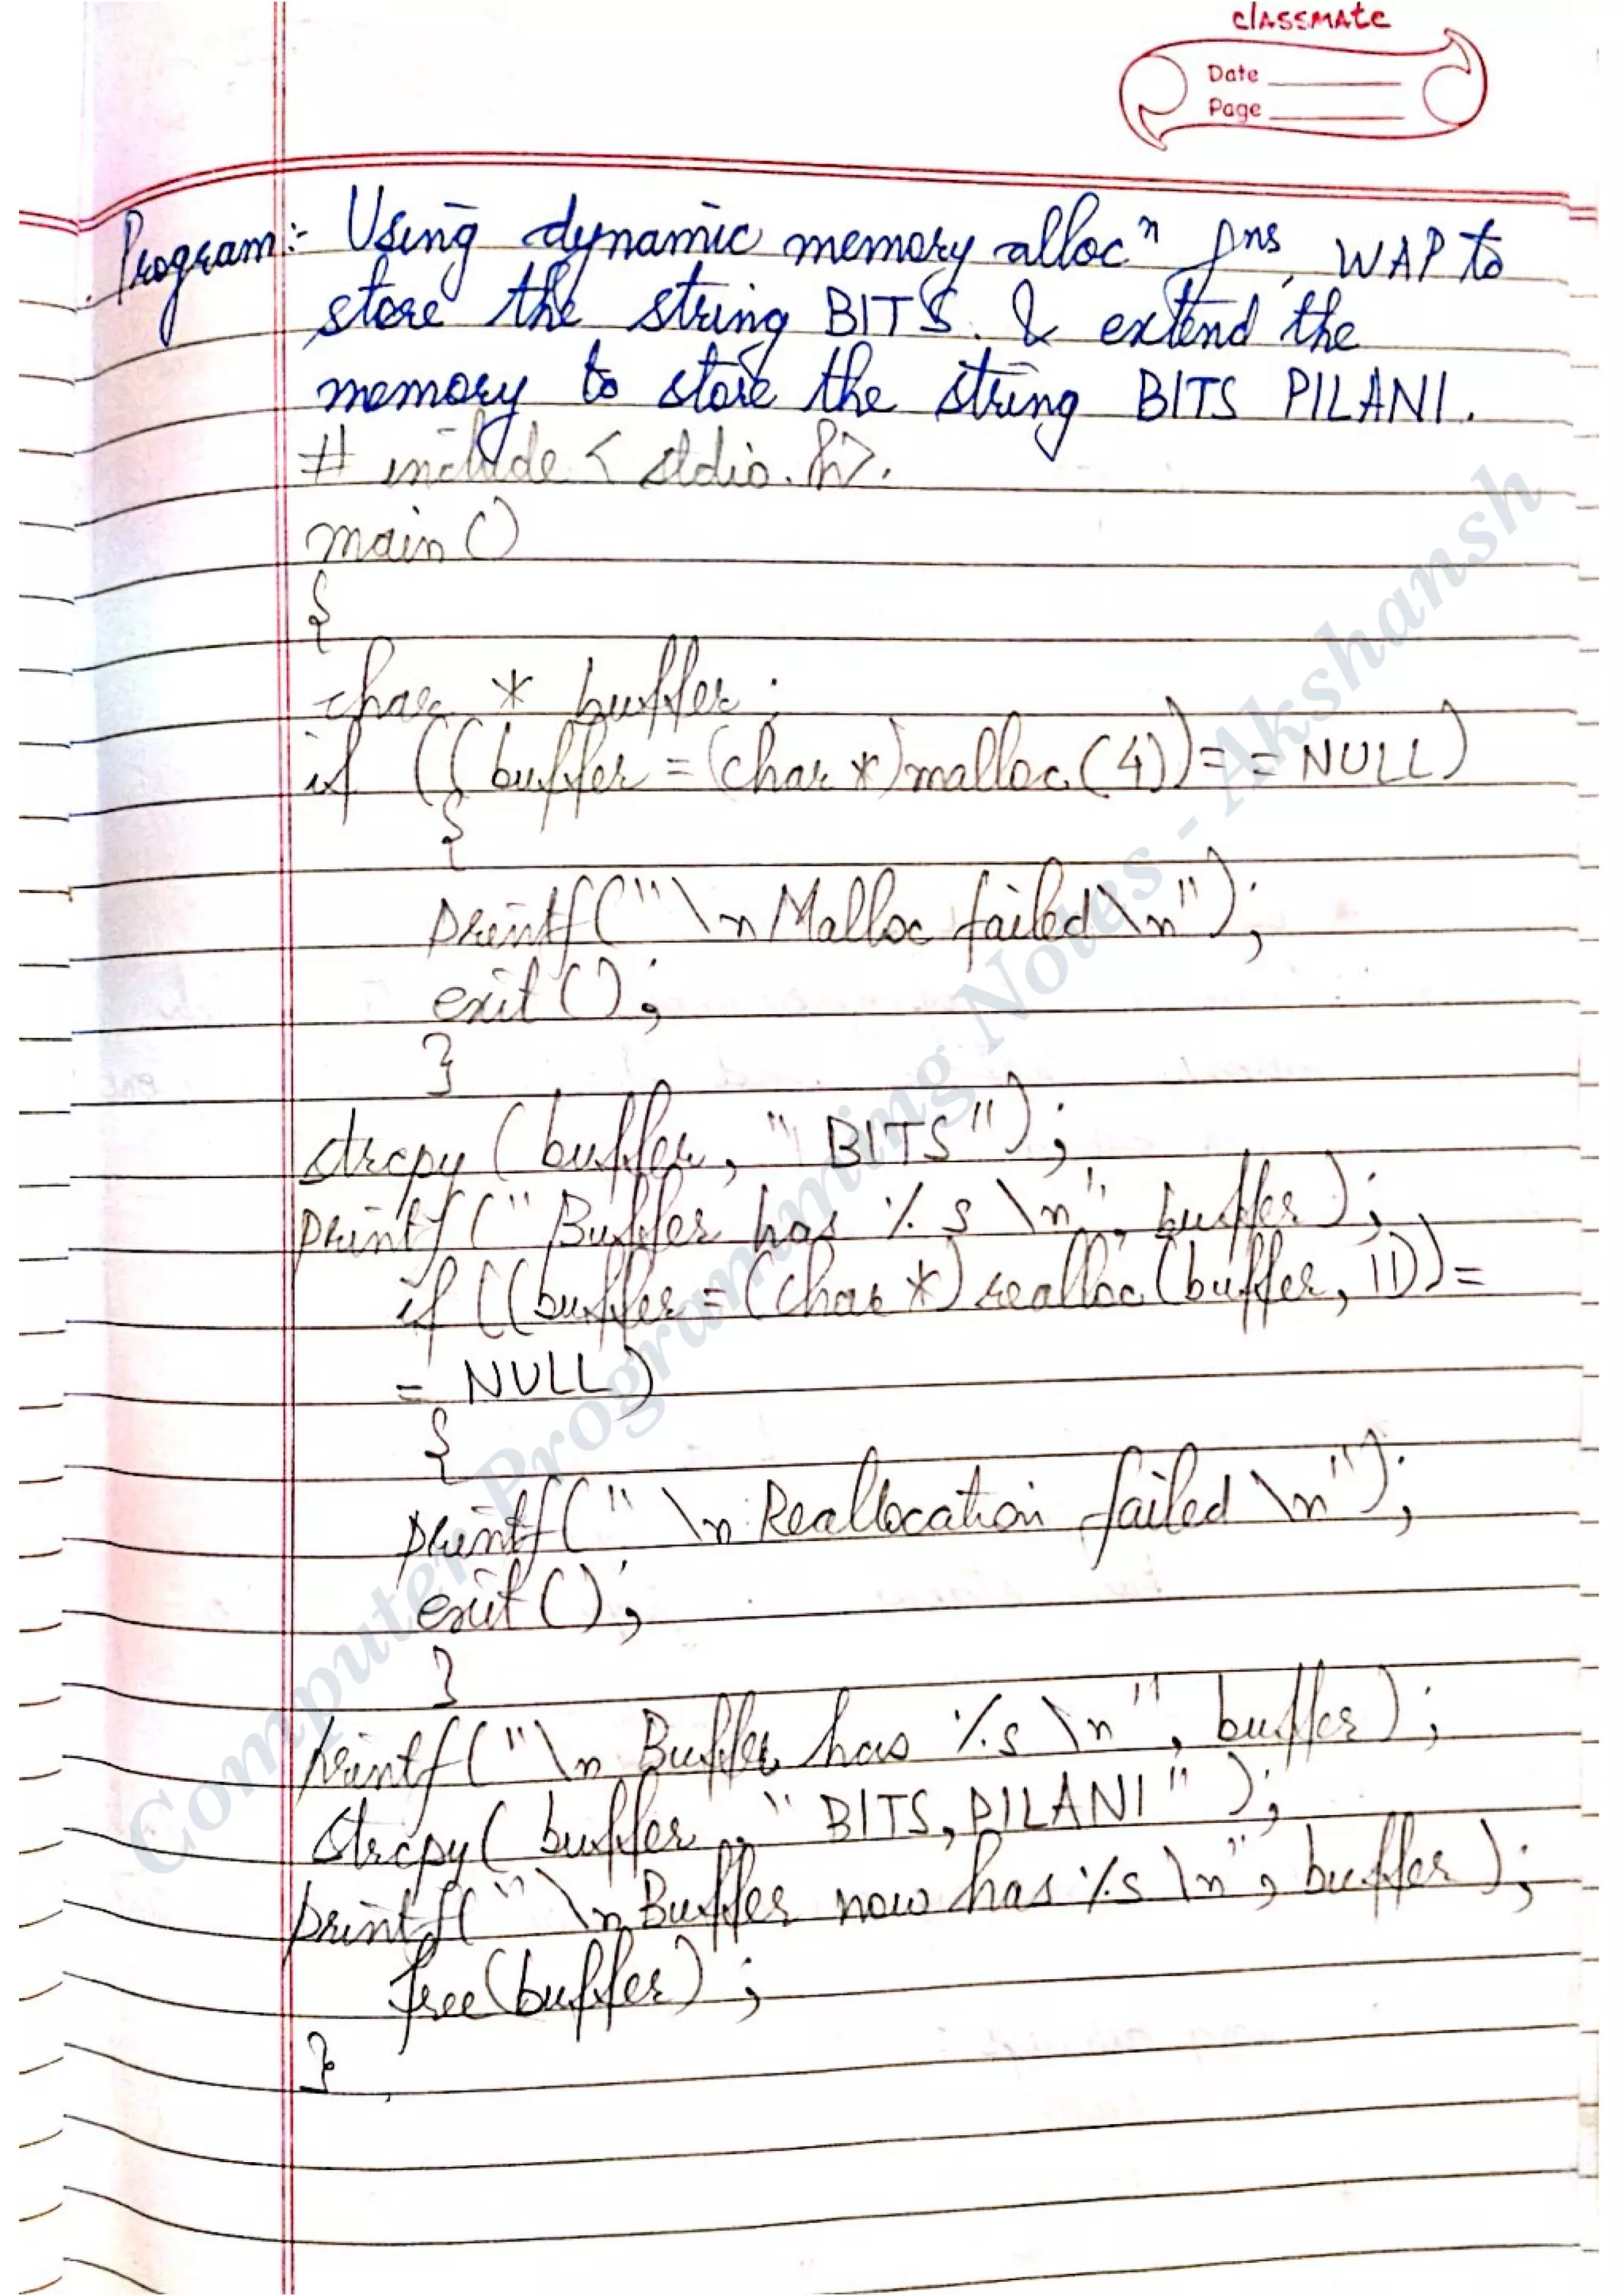 classmate
Date
Page
Program:- Using dynamic memory allocⁿ fⁿˢ, WAP to
store the string BITS. & extend the
memory to store the string BITS PILANI.
# include < stdio.h>.
main ()
{
char * buffer ;
if ((buffer = (char *) malloc (4)) = = NULL)
{
printf("\n Malloc failed \n");
exit ();
}
strcpy (buffer, "BITS");
printf ("Buffer has %s \n", buffer);
if ((buffer = (char *) realloc (buffer, 11)) =
= NULL)
{
printf(" \n Reallocation failed \n");
exit ();
}
printf("\n Buffer has %s \n", buffer);
strcpy( buffer, "BITS, PILANI");
printf(" \n Buffer now has %s \n", buffer);
free (buffer);
}
Computer Programming Notes - Akshansh